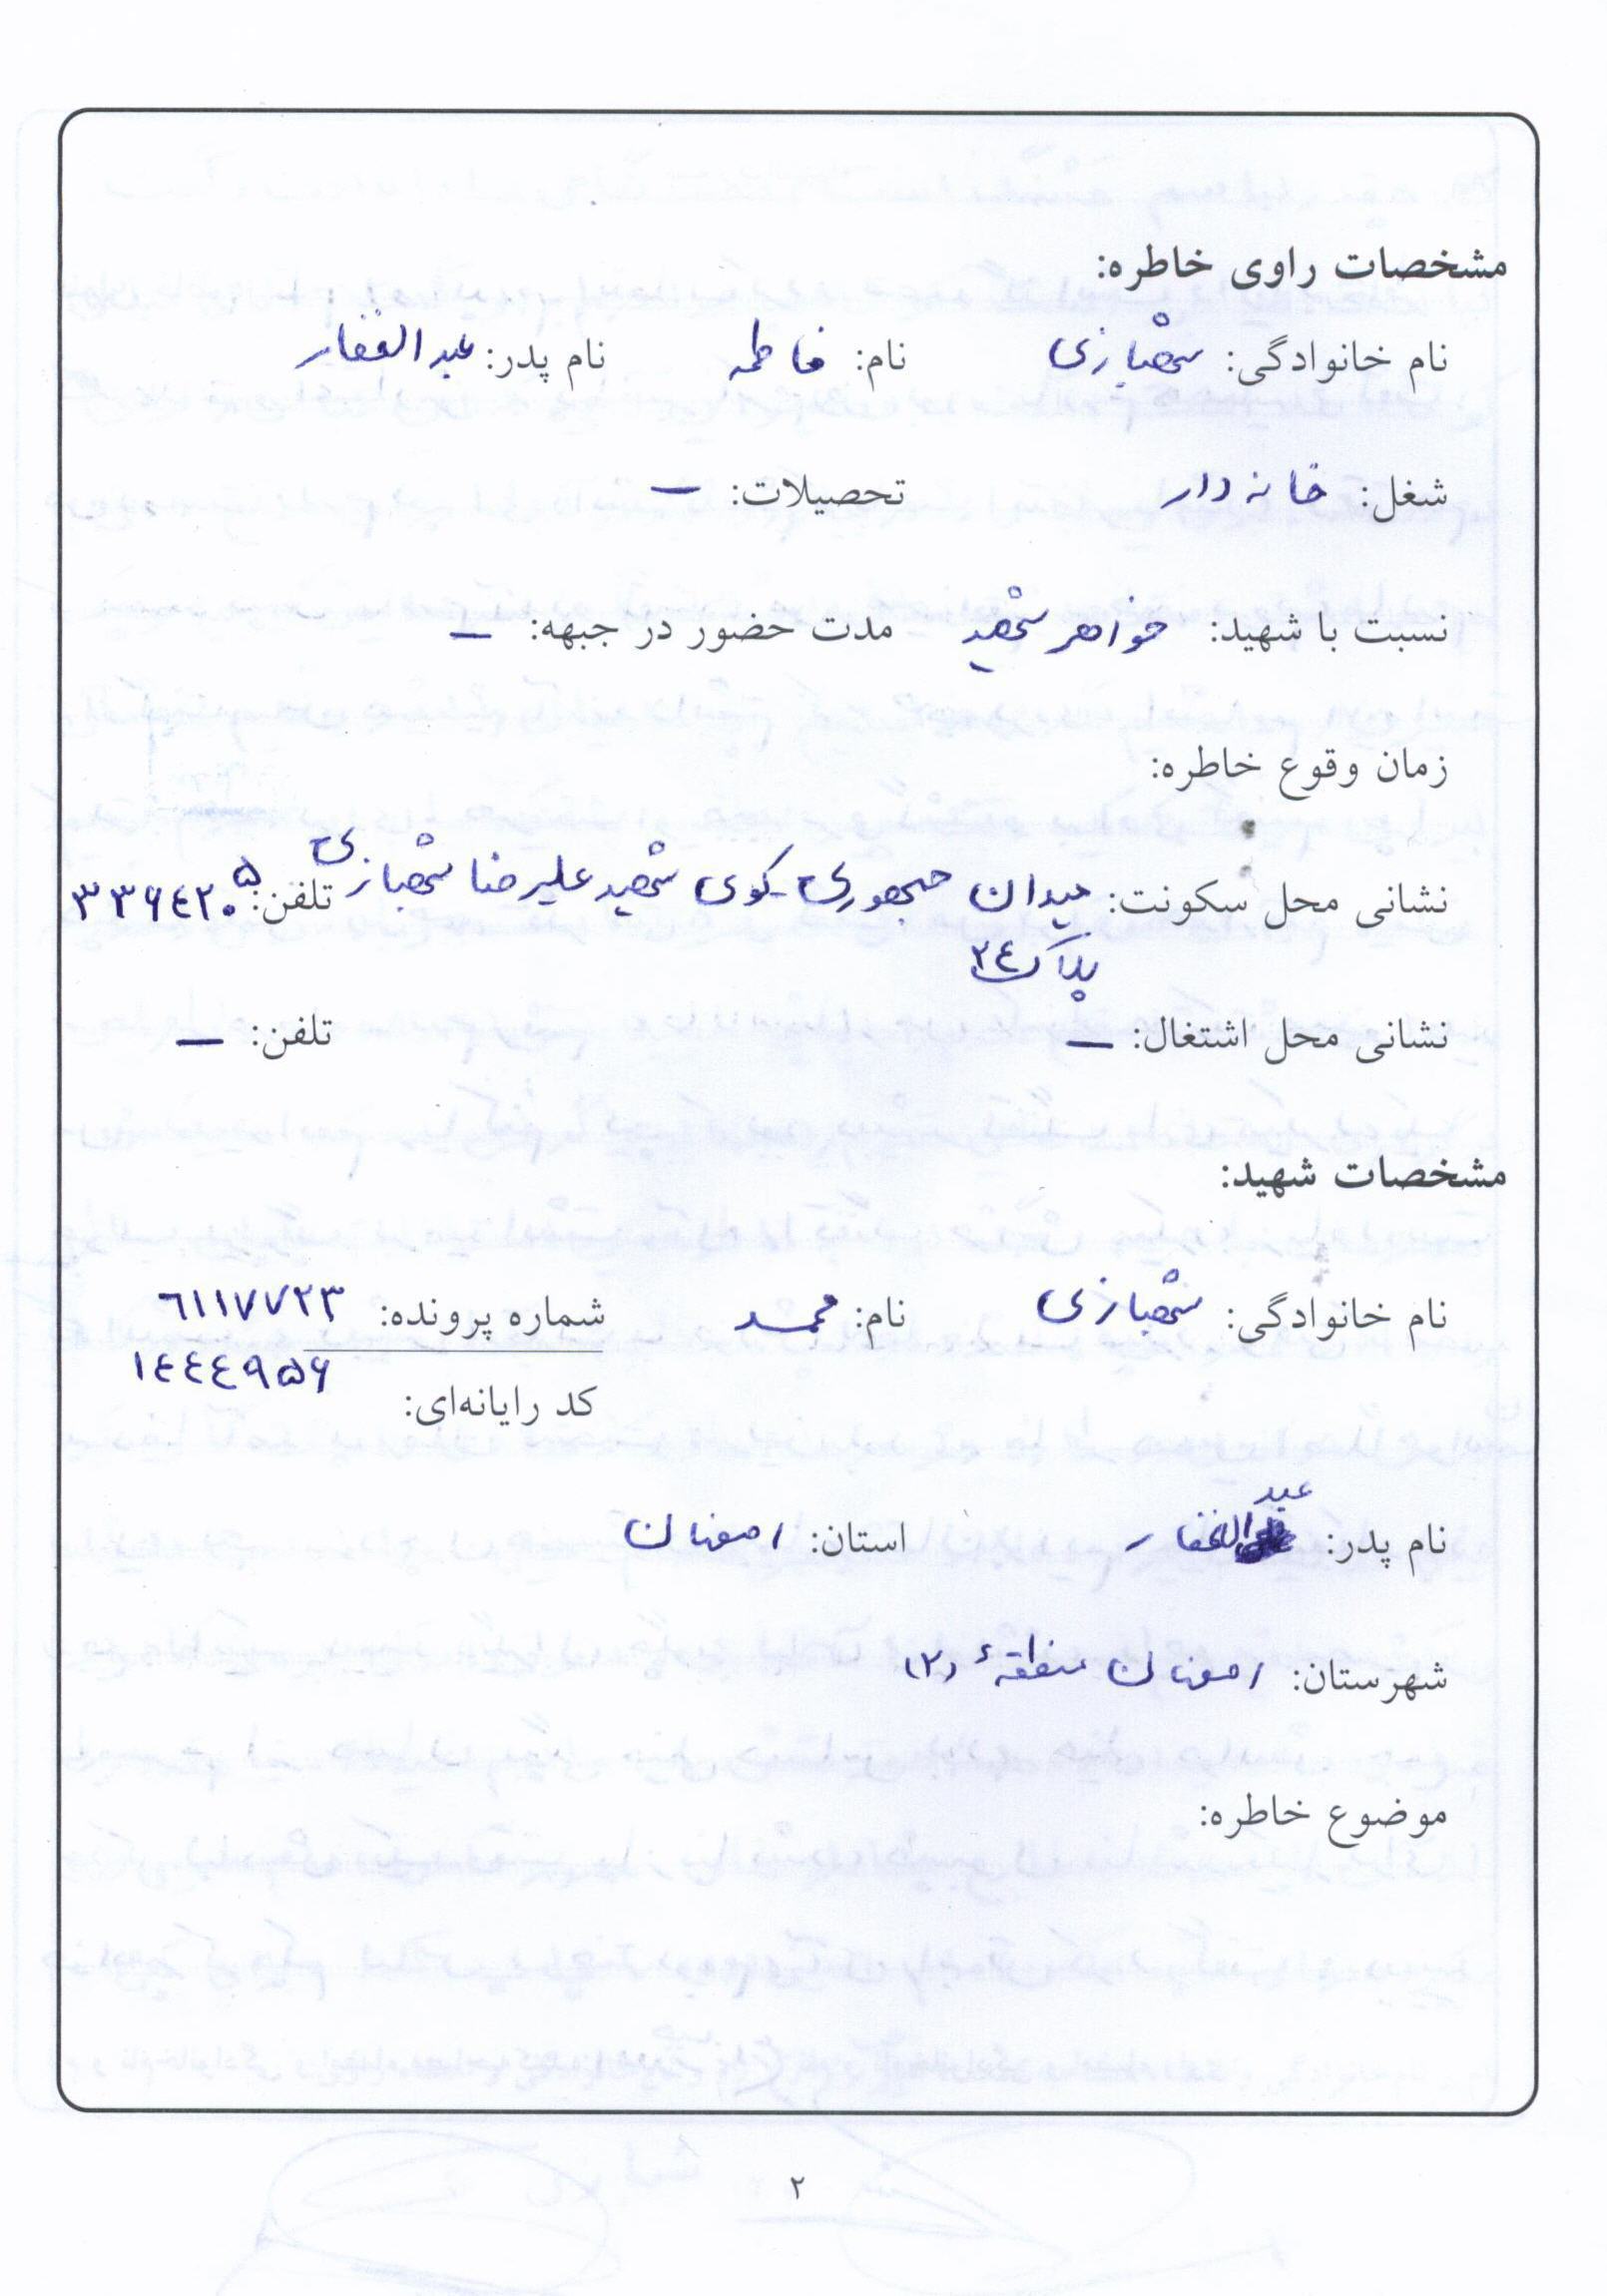 مشخصات راوی خاطره:
نام خانوادگی: شهبازی نام: فاطمه نام پدر: عبدالغفار
شغل: خانه دار تحصیلات: —
نسبت با شهید: خواهر شهید مدت حضور در جبهه: —
زمان وقوع خاطره:
نشانی محل سکونت: میدان جمهوری - کوی شهید علیرضا شهبازی تلفن: ۳۳۶۴۲۰۵
پلاک ۲۴
نشانی محل اشتغال: — تلفن: —
مشخصات شهید:
نام خانوادگی: شهبازی نام: محمد شماره پرونده: ۶۱۱۷۷۲۳
کد رایانه‌ای: ۱۴۴۴۹۵۶
نام پدر: عبدالغفار استان: اصفهان
شهرستان: اصفهان منطقهٔ (۲)
موضوع خاطره:
۲